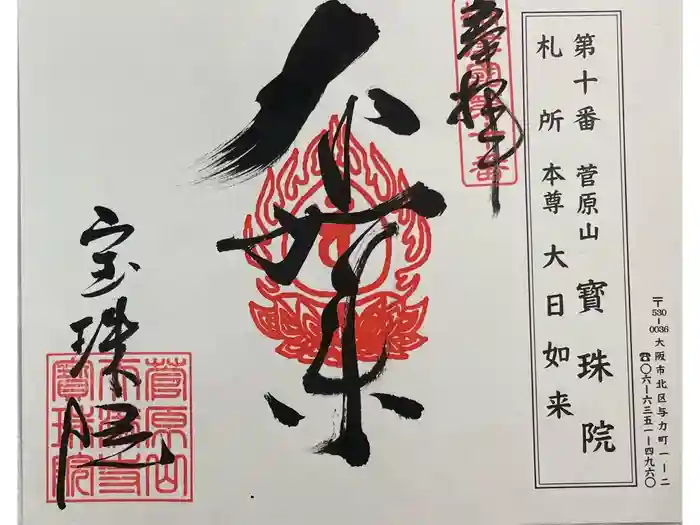 〒530-0036 大阪市北区与力町一ー二
☎〇六ー六三五一ー四九六〇
第十番 菅原山 寶珠院
札所本尊 大日如来
奉拝
大日如来
宝珠院
菅原山
寶珠院